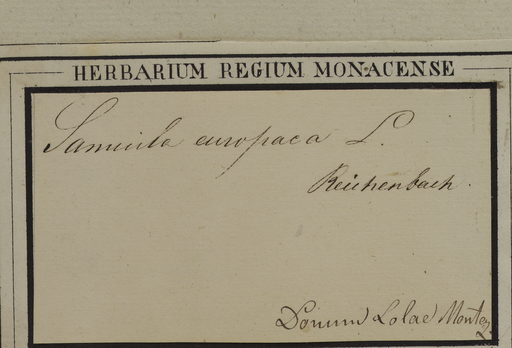 HERBARIUM REGIUM MONACENSE
Sanicula europaea L.
Reichenbach.
Donum Lolae Montez